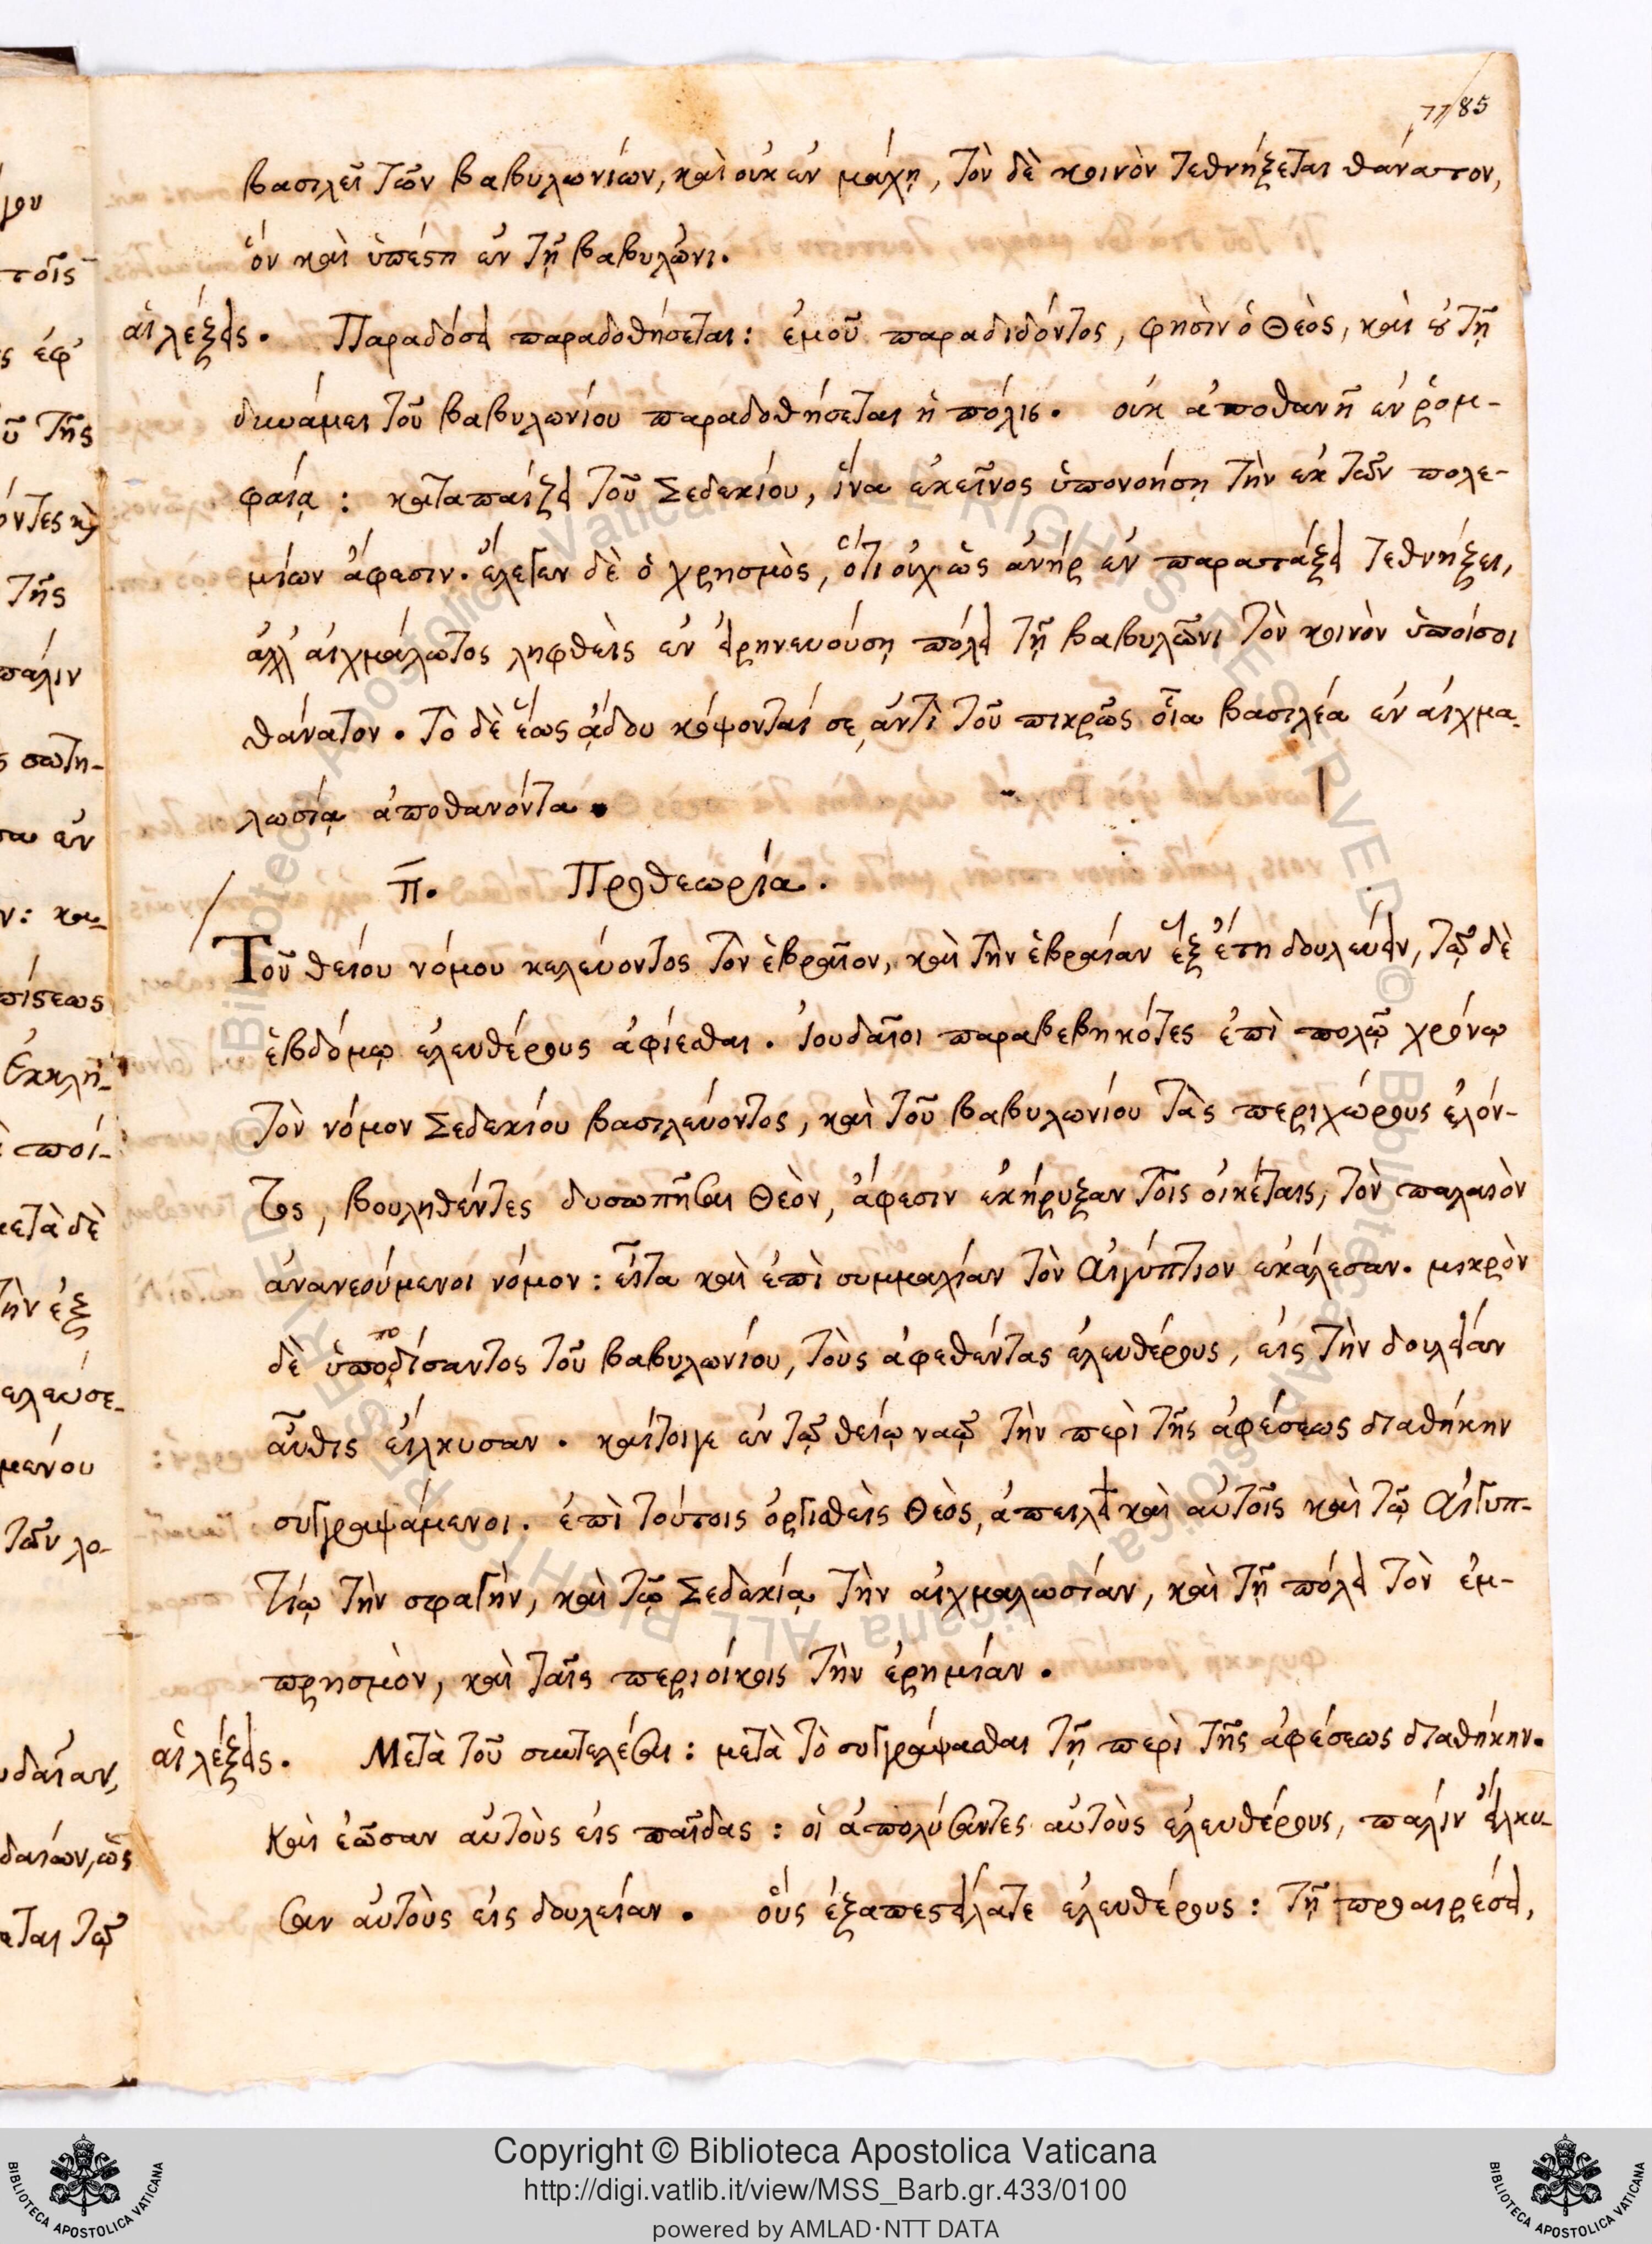 77/85
βασιλεῖ τῶν Βαβυλωνίων, καὶ οὐκ ἐν μάχῃ, τὸν δὲ κοινὸν τεθνήξεται θάνατον,
ὃν καὶ ὑπέστη ἐν τῇ Βαβυλῶνι.
αἱ λέξεις. Παραδόσει παραδοθήσεται: ἐμοῦ παραδιδόντος, φησὶν ὁ Θεὸς, καὶ οὐ τῇ
δυνάμει τοῦ Βαβυλωνίου παραδοθήσεται ἡ πόλις. οὐκ ἀποθανῇ ἐν ῥομ-
φαίᾳ: καταπαίζει τοῦ Σεδεκίου, ἵνα ἐκεῖνος ὑπονοήσῃ τὴν ἐκ τῶν πολε-
μίων ἄφεσιν. ἔλεγεν δὲ ὁ χρησμὸς, ὅτι οὐχ ὡς ἀνήρ ἐν παρατάξει τεθνήξει,
ἀλλ' αἰχμάλωτος ληφθεὶς ἐν εἰρηνευούσῃ πόλει τῇ Βαβυλῶνι τὸν κοινὸν ὑποίσοι
θάνατον. τὸ δὲ ἕως ᾅδου κόψονταί σε, ἀντὶ τοῦ πικρῶς οἷα βασιλέα ἐν αἰχμα-
λωσίᾳ ἀποθανόντα.
π. Προθεωρία.
Τοῦ θείου νόμου κελεύοντος τὸν ἑβραῖον, καὶ τὴν ἑβραίαν ἓξ ἔτη δουλεύειν, τῷ δὲ
ἑβδόμῳ ἐλευθέρους ἀφίεσθαι. Ἰουδαῖοι παραβεβηκότες ἐπὶ πολῷ χρόνῳ
τὸν νόμον Σεδεκίου βασιλεύοντος, καὶ τοῦ Βαβυλωνίου τὰς περιχώρους ἑλόν-
τος, βουληθέντες δυσωπῆσαι Θεὸν, ἄφεσιν ἐκήρυξαν τοῖς οἰκέταις, τὸν παλαιὸν
ἀνανεούμενοι νόμον: εἶτα καὶ ἐπὶ συμμαχίαν τὸν Αἰγύπτιον ἐκάλεσαν. μικρὸν
δὲ ὑποποδίσαντος τοῦ Βαβυλωνίου, τοὺς ἀφεθέντας ἐλευθέρους, εἰς τὴν δουλείαν
αὖθις εἵλκυσαν. καίτοιγε ἐν τῷ θείῳ ναῷ τὴν περὶ τῆς ἀφέσεως διαθήκην
συγγραψάμενοι. ἐπὶ τούτοις ὀργισθεὶς Θεὸς, ἀπειλεῖ καὶ αὐτοῖς καὶ τῷ Αἰγυπ-
τίῳ τὴν σφαγὴν, καὶ τῷ Σεδεκίᾳ τὴν αἰχμαλωσίαν, καὶ τῇ πόλει τὸν ἐμ-
πρησμὸν, καὶ ταῖς περιοίκοις τὴν ἐρημίαν.
αἱ λέξεις. Μετὰ τοῦ συντελέσαι: μετὰ τὸ συγγράψασθαι τῇ περὶ τῆς ἀφέσεως διαθήκην.
καὶ ἐῶσαν αὐτοὺς εἰς παῖδας: οἱ ἀπολύσαντες αὐτοὺς ἐλευθέρους, παλίν εἵλκυ-
σαν αὐτοὺς εἰς δουλείαν. οὓς ἐξαπεστείλατε ἐλευθέρους: τῇ προαιρέσει,
Copyright © Biblioteca Apostolica Vaticana
http://digi.vatlib.it/view/MSS_Barb.gr.433/0100
powered by AMLAD·NTT DATA